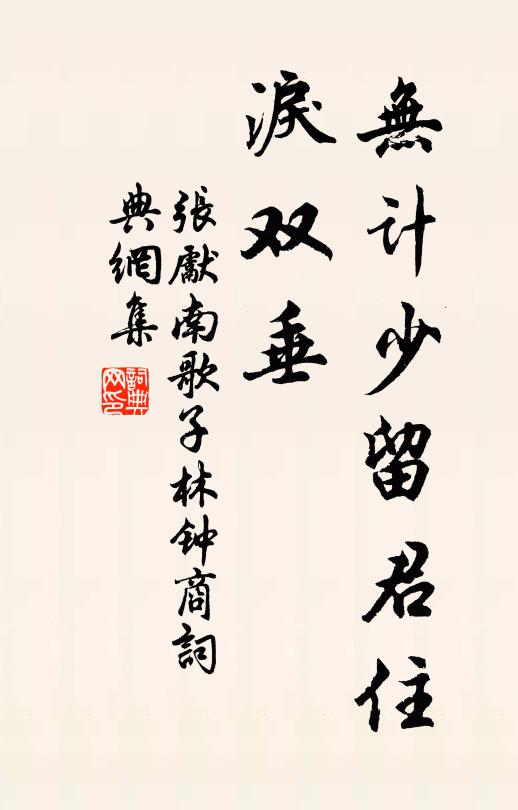 無计少留君住
淚双垂
張獻南歌子林钟商詞
典網集
詞典網印